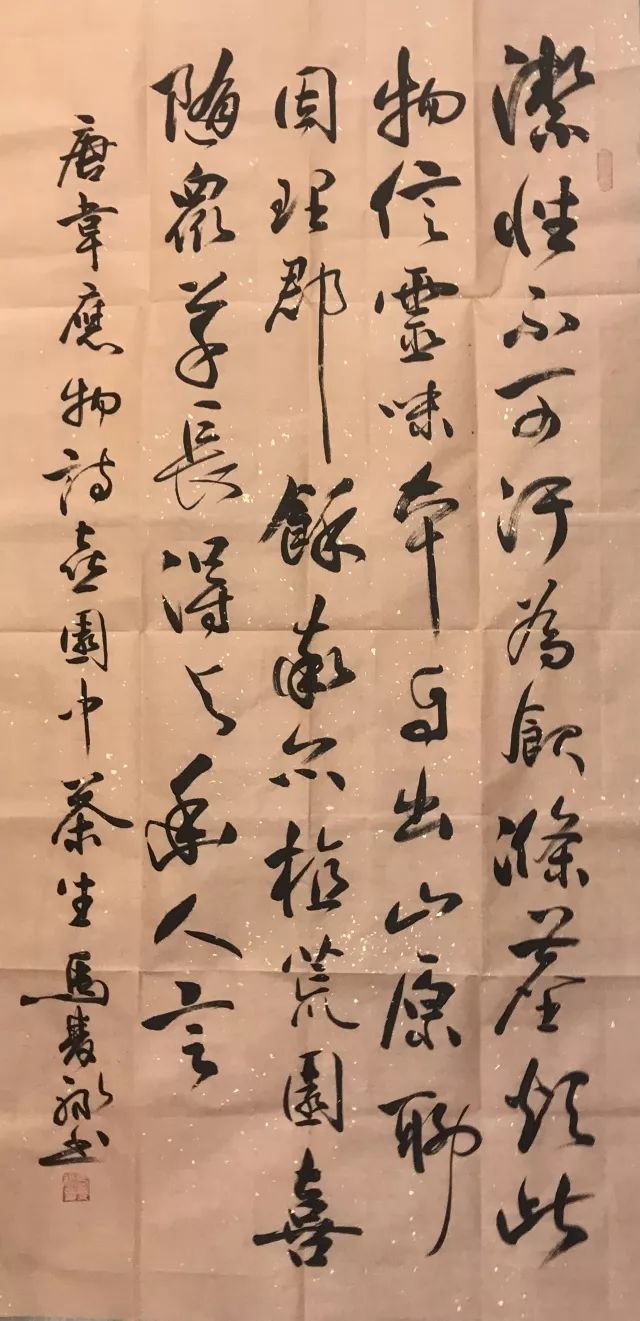 潔性不可汙為飲滌塵煩此
物信靈味本自出山原聊
因理郡餘率尔植荒園喜
随衆草長得与幽人言
唐韋應物詩喜園中茶生馬永书